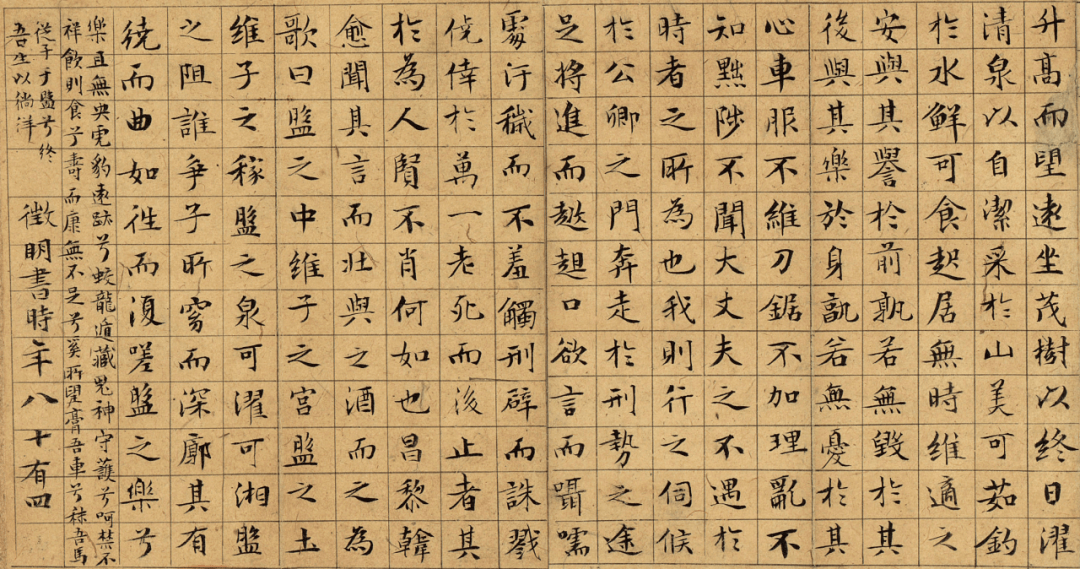 升高而望遠坐茂樹以終日濯
清泉以自潔采於山美可茹釣
於水鮮可食起居無時維適之
安與其譽於前孰若無毀於其
後與其樂於身孰若無憂於其
心車服不維刀鋸不加理亂不
知黜陟不聞大丈夫之不遇於
時者之所為也我則行之伺候
於公卿之門奔走於刑勢之途
足將進而趑趄口欲言而囁嚅
處汙穢而不羞觸刑辟而誅戮
僥倖於萬一老死而後止者其
於為人賢不肖何如也昌黎韓
愈聞其言而壯與之酒而之為
歌曰盤之中維子之宮盤之土
維子之稼盤之泉可濯可湘盤
之阻誰爭子所窈而深廓其有
繞而曲如往而復嗟盤之樂兮
樂且無央虎豹遠跡兮蛟龍遁藏鬼神守護兮呵禁不
祥飲則食兮壽而康無不足兮奚所望膏吾車兮秣吾馬
從子于盤兮終
吾生以徜洋
徵明書時年八十有四